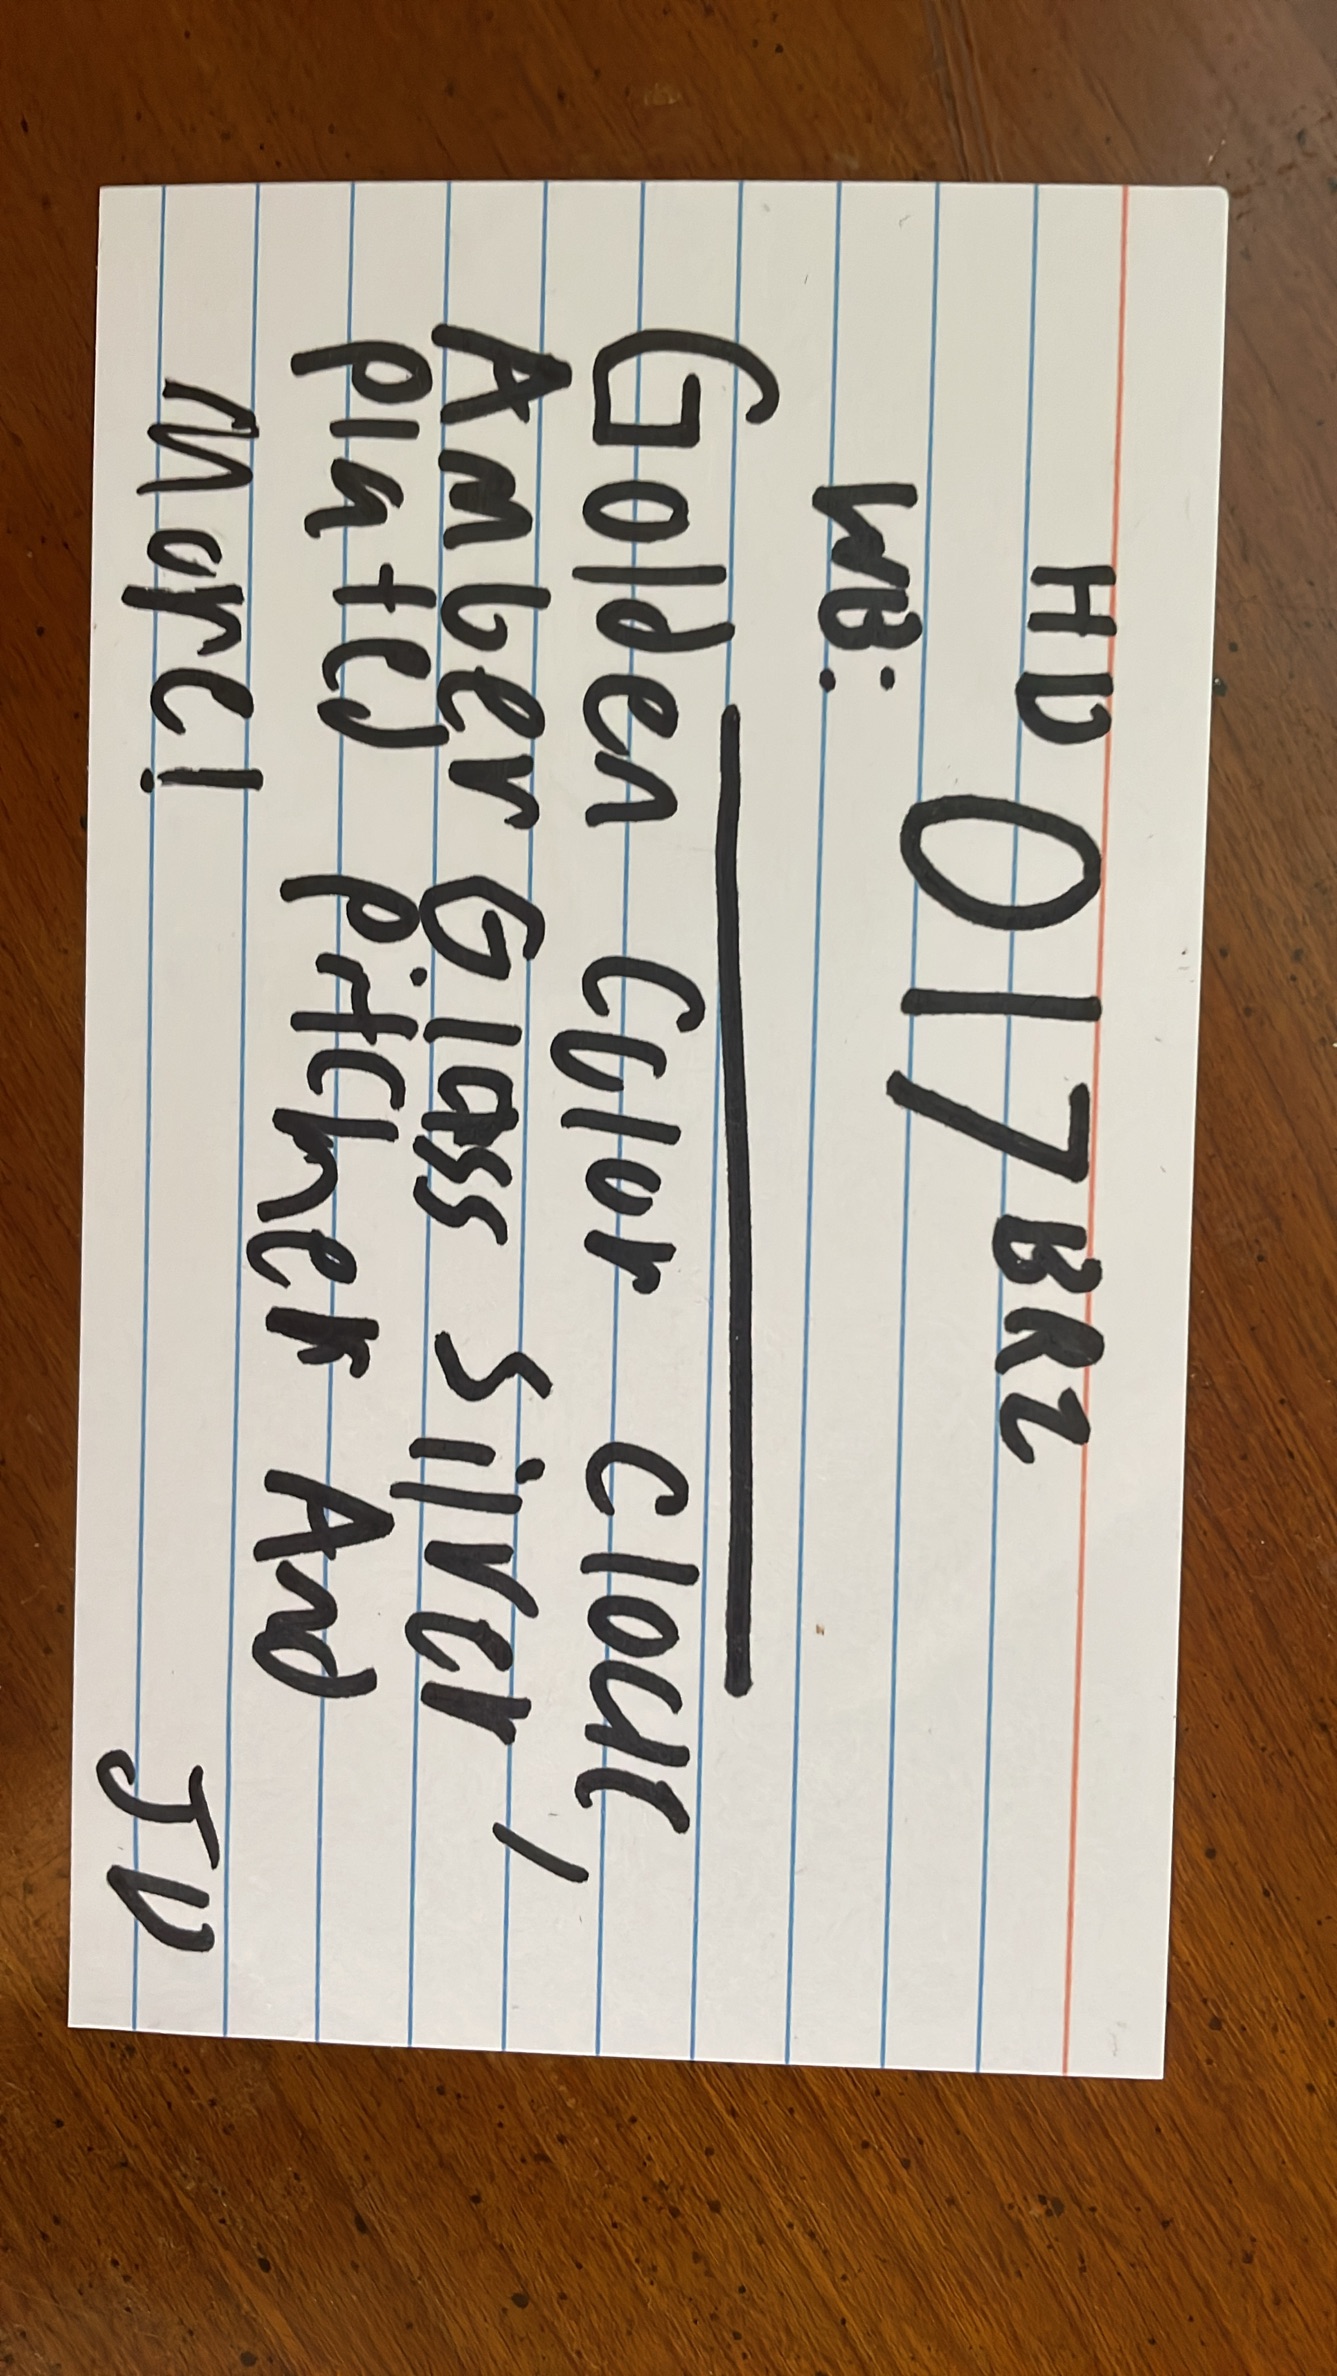 HD 017 BRZ
WB:
Golden Color Clock,
Amber Glass Silver
Plated Pitcher And
More!
JD